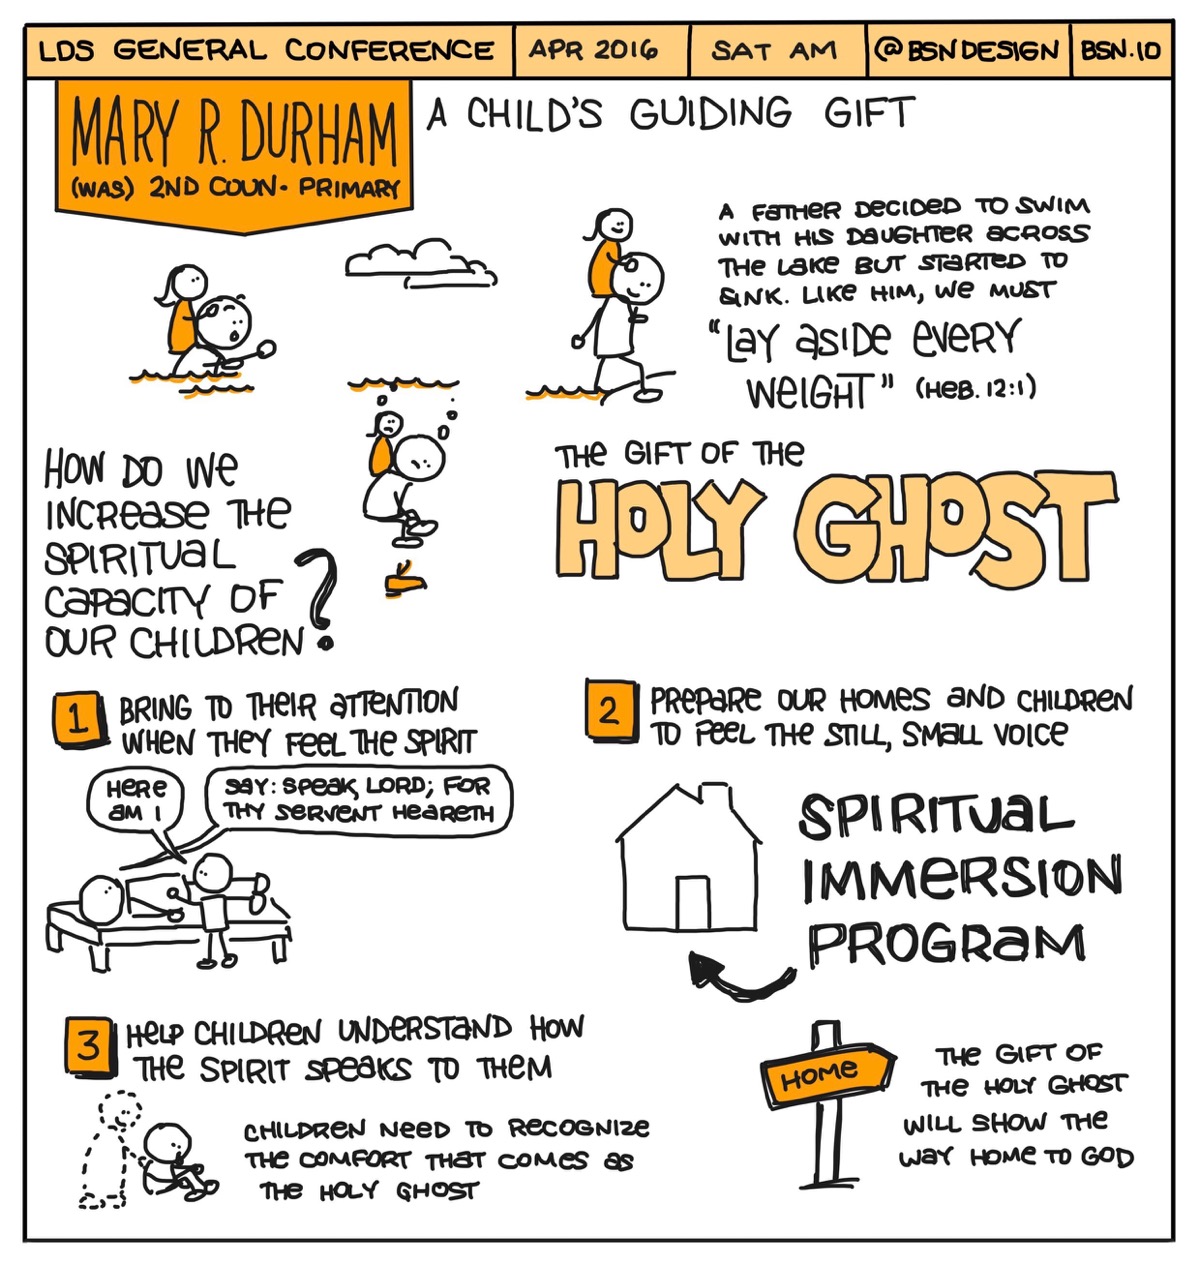 LDS GENERAL CONFERENCE
APR 2016
SAT AM
@BSNDESIGN
BSN.IO
MARY R. DURHAM
(WAS) 2ND COUN. PRIMARY
A CHILD'S GUIDING GIFT
A FATHER DECIDED TO SWIM
WITH HIS DAUGHTER ACROSS
THE LAKE BUT STARTED TO
SINK. LIKE HIM, WE MUST
"LAY ASIDE EVERY
WEIGHT" (HEB. 12:1)
HOW DO WE
INCREASE THE
SPIRITUAL
CAPACITY OF
OUR CHILDREN?
THE GIFT OF THE
HOLY GHOST
1
BRING TO THEIR ATTENTION
WHEN THEY FEEL THE SPIRIT
HERE
AM I
SAY: SPEAK, LORD; FOR
THY SERVENT HEARETH
2
PREPARE OUR HOMES AND CHILDREN
TO FEEL THE STILL, SMALL VOICE
SPIRITUAL
IMMERSION
PROGRAM
3
HELP CHILDREN UNDERSTAND HOW
THE SPIRIT SPEAKS TO THEM
CHILDREN NEED TO RECOGNIZE
THE COMFORT THAT COMES AS
THE HOLY GHOST
HOME
THE GIFT OF
THE HOLY GHOST
WILL SHOW THE
WAY HOME TO GOD